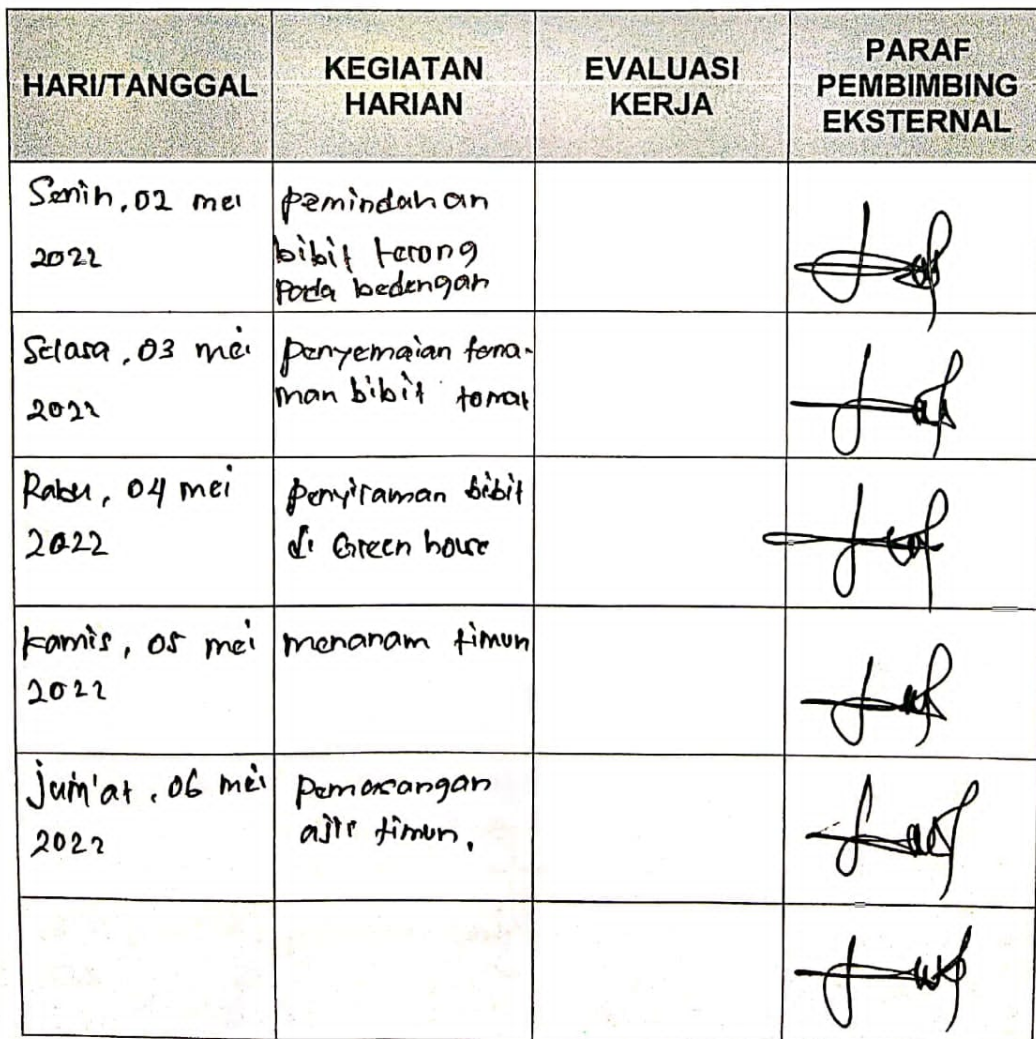 HARI/TANGGAL
KEGIATAN
HARIAN
EVALUASI
KERJA
PARAF
PEMBIMBING
EKSTERNAL
Senin, 02 mei
2022
pemindahan
bibit terong
pada bedengan
Selasa, 03 mei
2022
penyemaian tana-
man bibit tomat
Rabu, 04 mei
2022
penyiraman bibit
di Green house
kamis, 05 mei
2022
menanam timun
jum'at, 06 mei
2022
pemasangan
ajir timun.